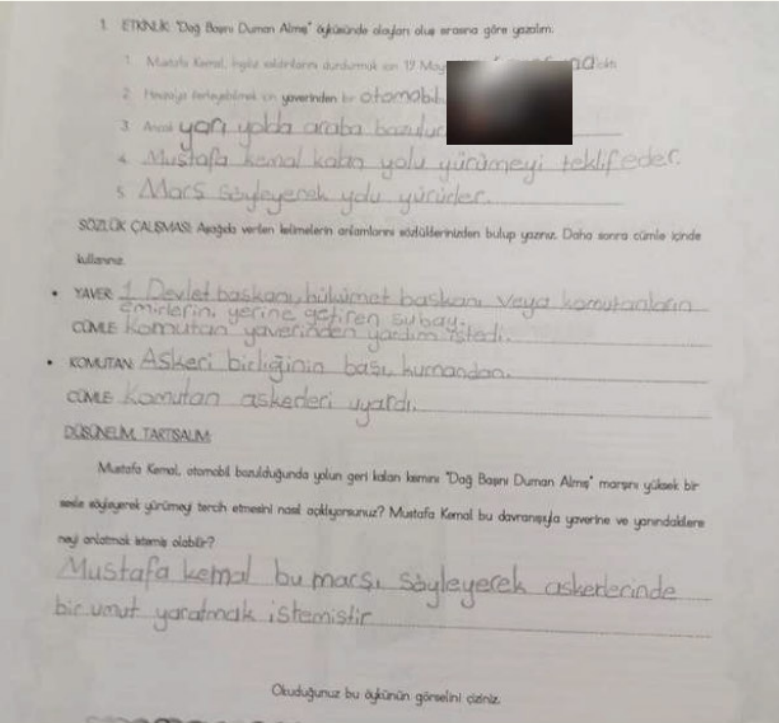 1. ETKİNLİK: "Dağ Başını Duman Almış" öyküsünde olayları oluş sırasına göre yazalım.
1. Mustafa Kemal, İngiliz saldırılarını durdurmak için 19 May
2. yaverinden bir otomobil
3. Ancak yarı yolda araba bozulur
4. Mustafa kemal kalan yolu yürümeyi teklif eder.
5. Marş söyleyerek yolu yürürler.
SÖZLÜK ÇALIŞMASI: Aşağıda verilen kelimelerin anlamlarını sözlüklerinizden bulup yazınız. Daha sonra cümle içinde
kullanınız.
• YAVER: 1. Devlet başkanı, hükümet başkanı veya komutanların
emirlerini yerine getiren subay.
CÜMLE: Komutan yaverinden yardım istedi.
• KOMUTAN: Askeri birliğinin başı, kumandan.
CÜMLE: Komutan askerleri uyardı.
DÜŞÜNELİM, TARTIŞALIM:
Mustafa Kemal, otomobil bozulduğunda yolun geri kalan kısmını "Dağ Başını Duman Almış" marşını yüksek bir
sesle söyleyerek yürümeyi tercih etmesini nasıl açıklıyorsunuz? Mustafa Kemal bu davranışıyla yaverine ve yanındakilere
neyi anlatmak istemiş olabilir?
Mustafa kemal bu marşı söyleyerek askerlerinde
bir umut yaratmak istemiştir
Okuduğunuz bu öykünün görselini çiziniz.